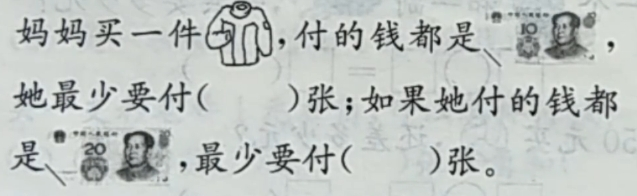 妈妈买一件，付的钱都是 10 ，
她最少要付(　　)张;如果她付的钱都
是 20 ，最少要付(　　)张。